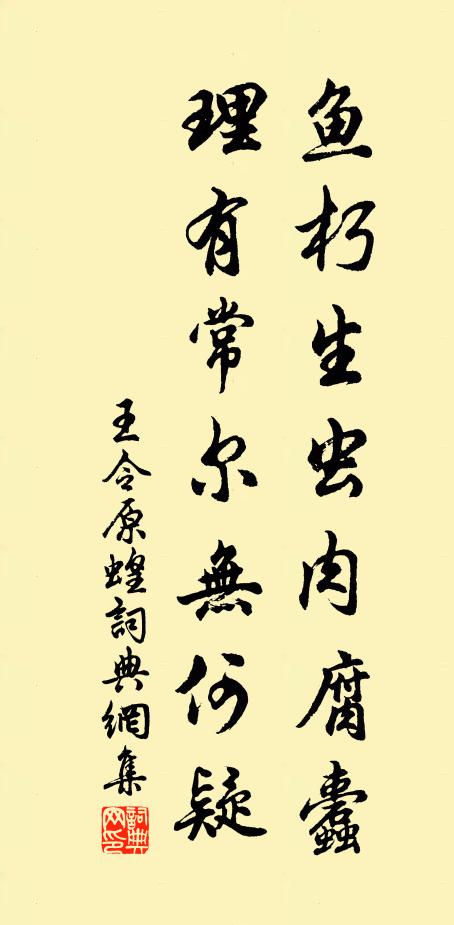 鱼朽生虫肉腐蠹
理有常尔無何疑
王令原蝗詞典網集
詞典网印